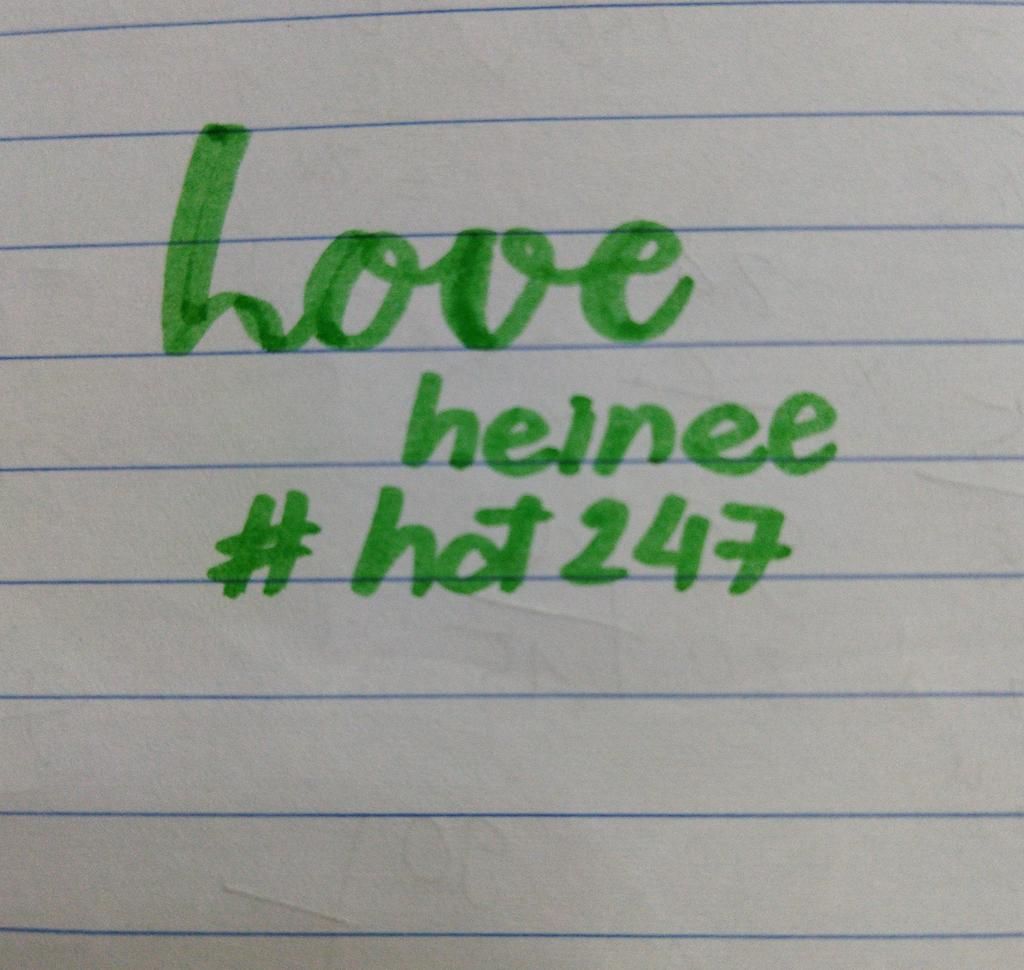 Love
heinee
# hot 247